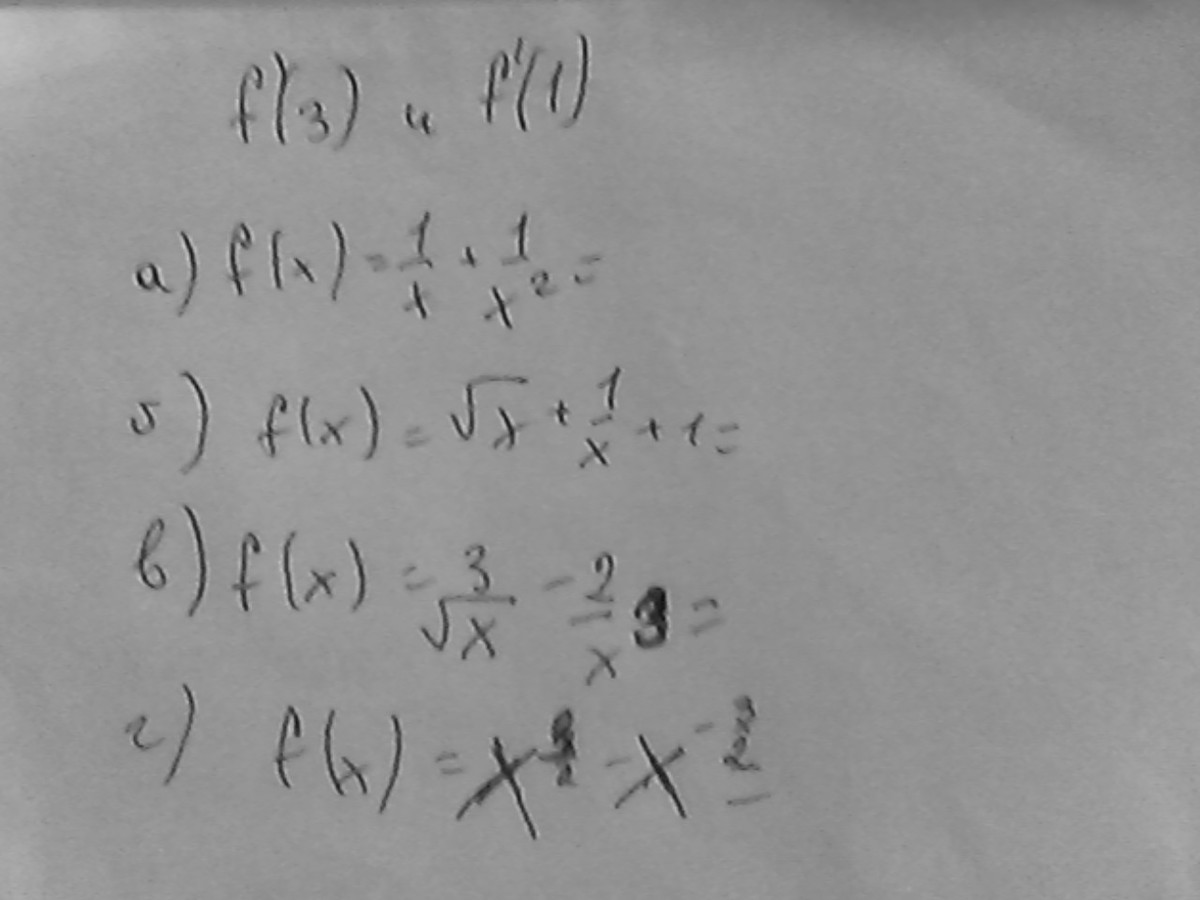 f'(3) и f'(1)
а) f(x) = 1/x + 1/x² =
б) f(x) = √x + 1/x + 1 =
в) f(x) = 3/√x - 2/x³ =
г) f(x) = x^(3/2) - x^(-3/2)